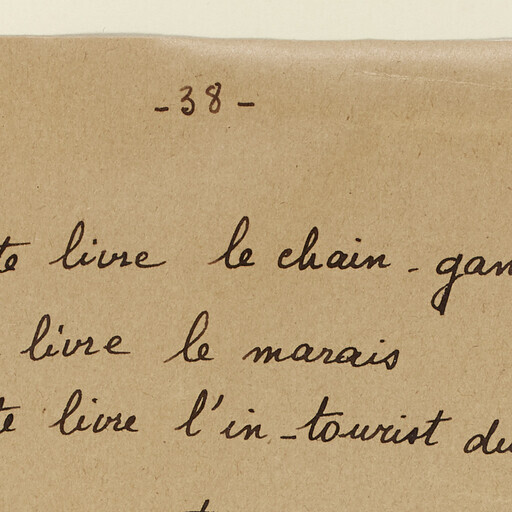 - 38 -
te livre le chain-gan
livre le marais
te livre l'in-tourist du